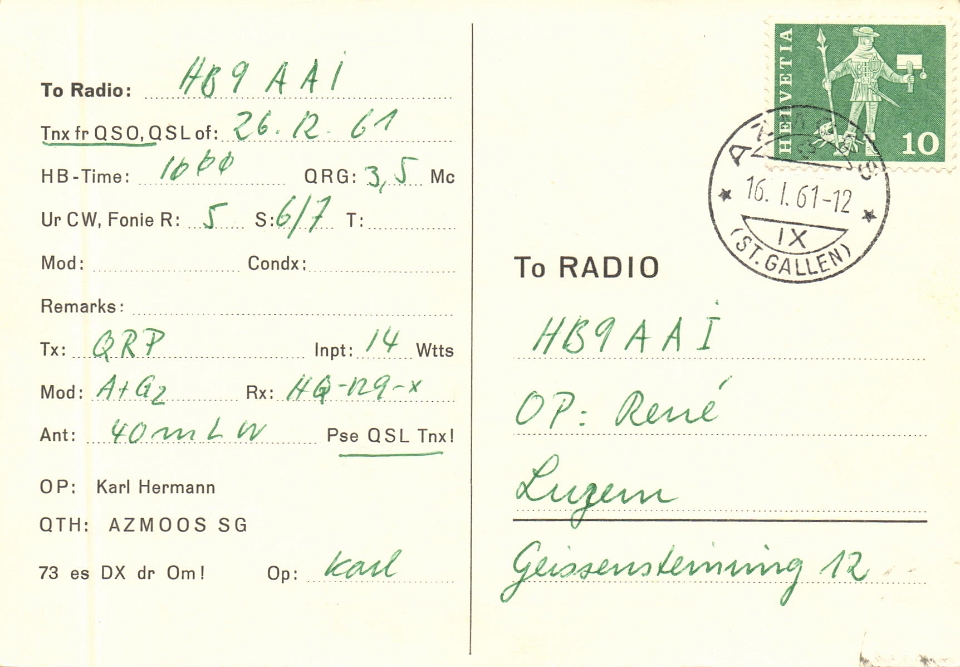 To Radio: HB9AAI
Tnx fr QSO, QSL of: 26.12.61
HB-Time: 1600 QRG: 3,5 Mc
Ur CW, Fonie R: 5 S: 6/7 T:
Mod: Condx:
Remarks:
Tx: QRP Inpt: 14 Wtts
Mod: A+G2 Rx: HQ-129-x
Ant: 40m LW Pse QSL Tnx!
OP: Karl Hermann
QTH: AZMOOS SG
73 es DX dr Om! Op: Karl
HELVETIA
10
AZMOOS
16.I.61-12
IX
(ST.GALLEN)
To RADIO
HB9AAI
OP: René
Luzern
12